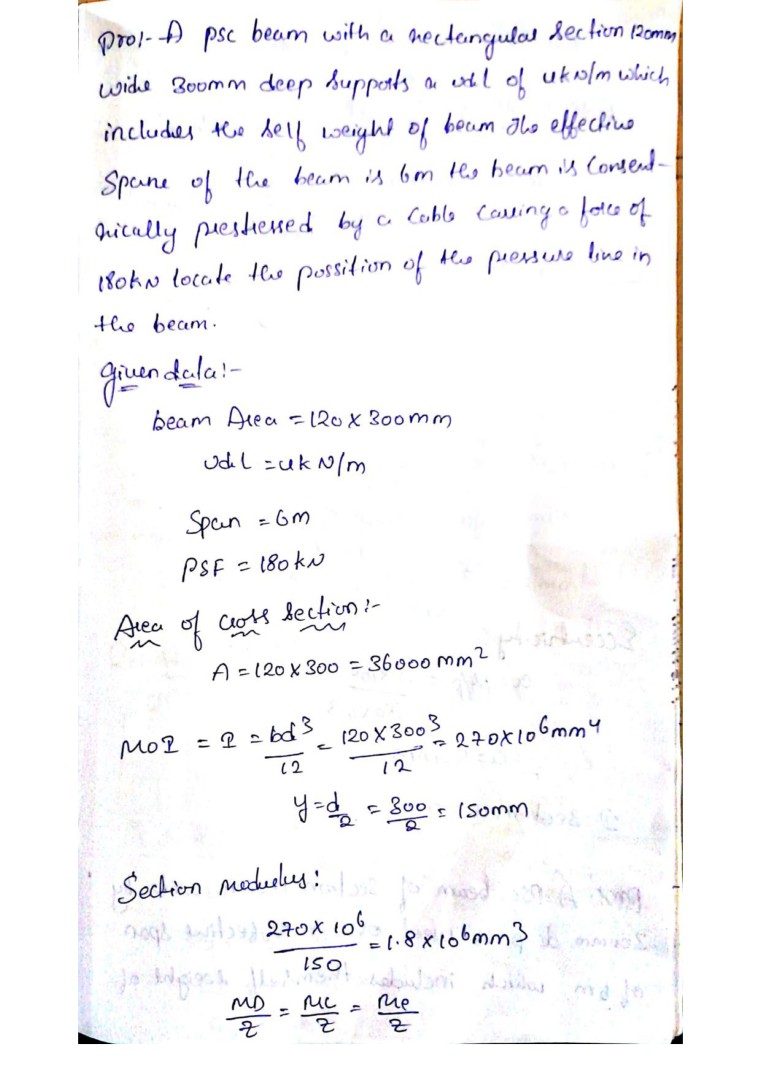 Pro:- A psc beam with a rectangular section 120mm
wide 300mm deep supports a udl of 4kN/m which
includes the self weight of beam The effective
Spane of the beam is 6m the beam is Consent-
rically prestressed by a cable causing a force of
180kN locate the possition of the pressure line in
the beam.
given data:-
beam Area = 120 x 300mm
Udl = 4kN/m
Span = 6m
PSF = 180kN
Area of cross section:-
A = 120 x 300 = 36000 mm²
MOI = I = bd³/12 = 120 x 300³/12 = 270 x 10⁶ mm⁴
y = d/2 = 300/2 = 150mm
Section modulus:
270 x 10⁶/150 = 1.8 x 10⁶ mm³
MD/Z = ML/Z = Me/Z